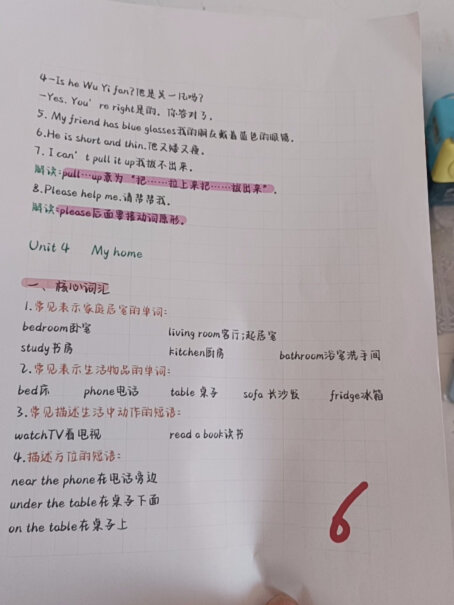 4-Is he Wu Yi fan?他是吴一凡吗?
-Yes. You're right是的,你答对了。
5. My friend has blue glasses我的朋友戴着蓝色的眼镜。
6.He is short and thin.他又矮又瘦。
7. I can't pull it up我拔不出来。
解读:pull…up意为“把……拉上来把……拔出来”。
8.Please help me.请帮帮我。
解读:please后面要接动词原形。
Unit 4 My home
一、核心词汇
1.常见表示家庭居室的单词:
bedroom卧室 living room客厅;起居室
study书房 kitchen厨房 bathroom浴室洗手间
2.常见表示生活物品的单词:
bed床 phone电话 table 桌子 sofa 长沙发 fridge冰箱
3.常见描述生活中动作的短语:
watchTV看电视 read a book读书
4.描述方位的短语:
near the phone在电话旁边
under the table在桌子下面
on the table在桌子上
6